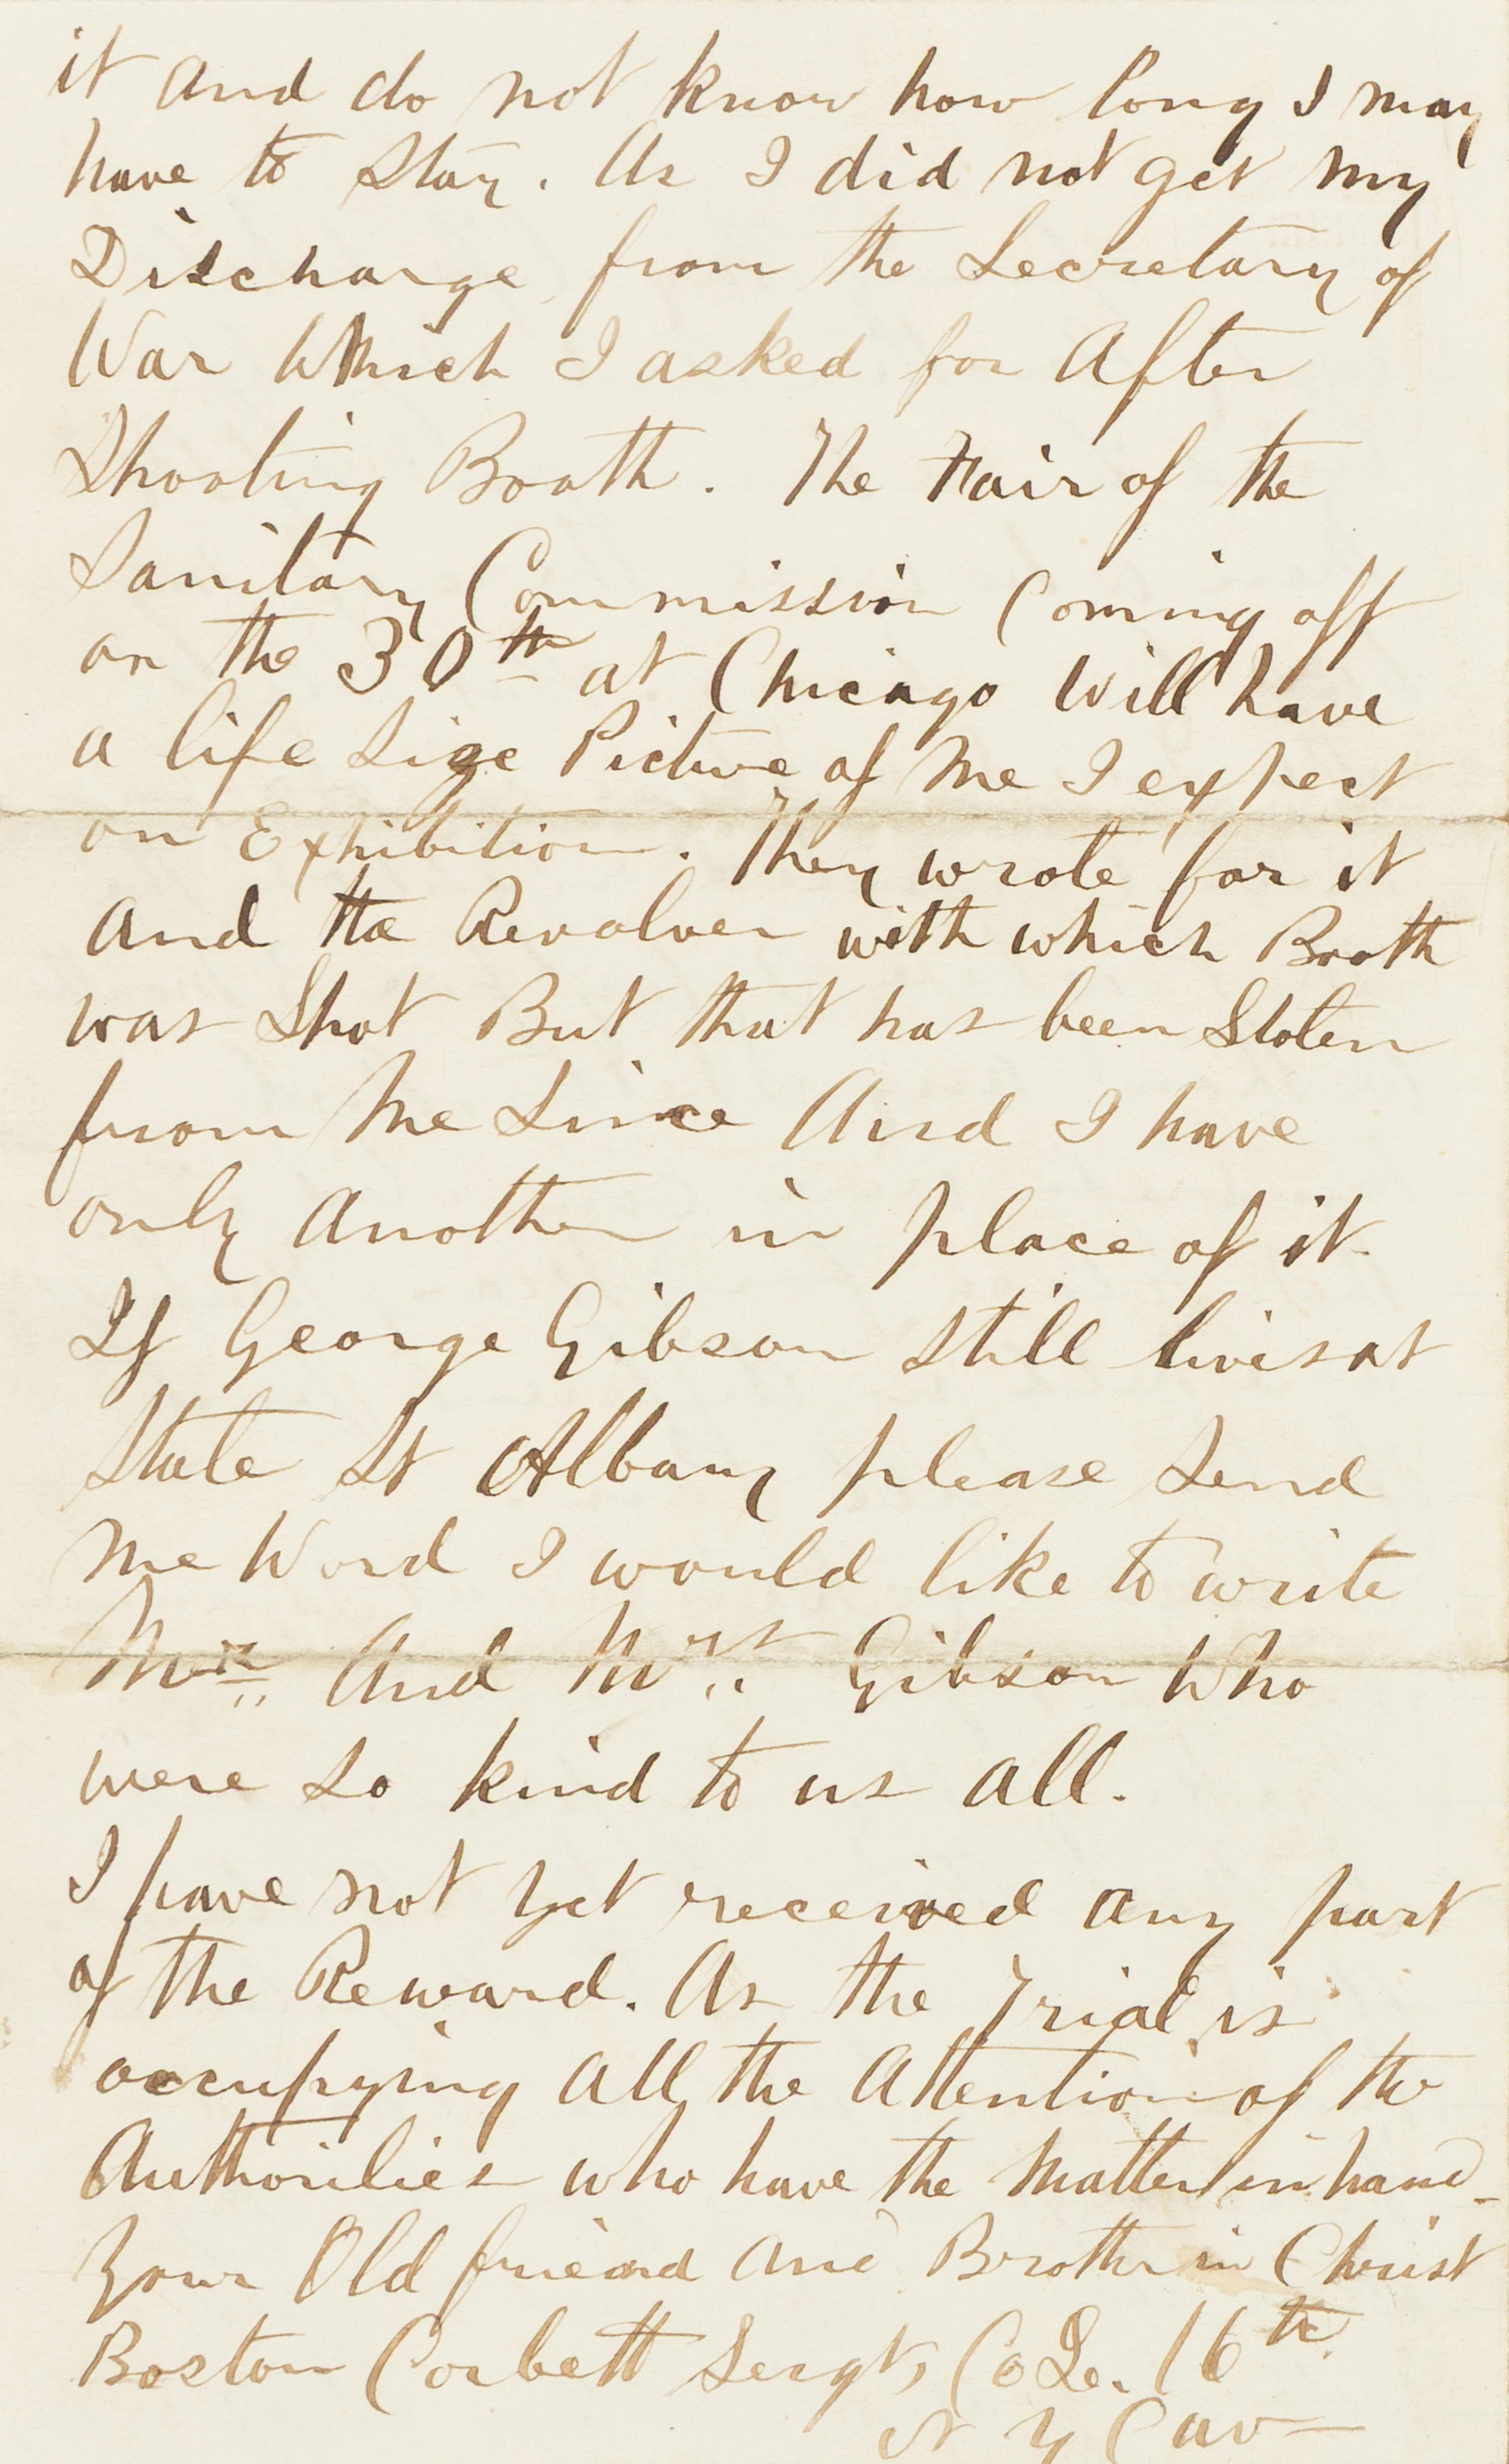 it And do not know how long I may
have to Stay. As I did not get my
Discharge from the Secretary of
War Which I asked for After
Shooting Booth. The Fair of the
Sanitary Commission Coming off
on the 30th at Chicago Will have
a life Size Picture of Me I expect
on Exhibition. They wrote for it
And the Revolver with which Booth
was Shot But that has been Stolen
from Me Since And I have
only Another in place of it.
If George Gibson Still lives at
State St Albany please Send
Me Word I would like to write
Mr. And Mrs. Gibson Who
were So kind to us all.
I have not Yet received any part
of the Reward. As the Trial is
occupying All the Attention of the
Authorities who have the Matter in hand_
Your Old friend And Brother in Christ
Boston Corbett Sergt, Co L. 16th
N Y Cav